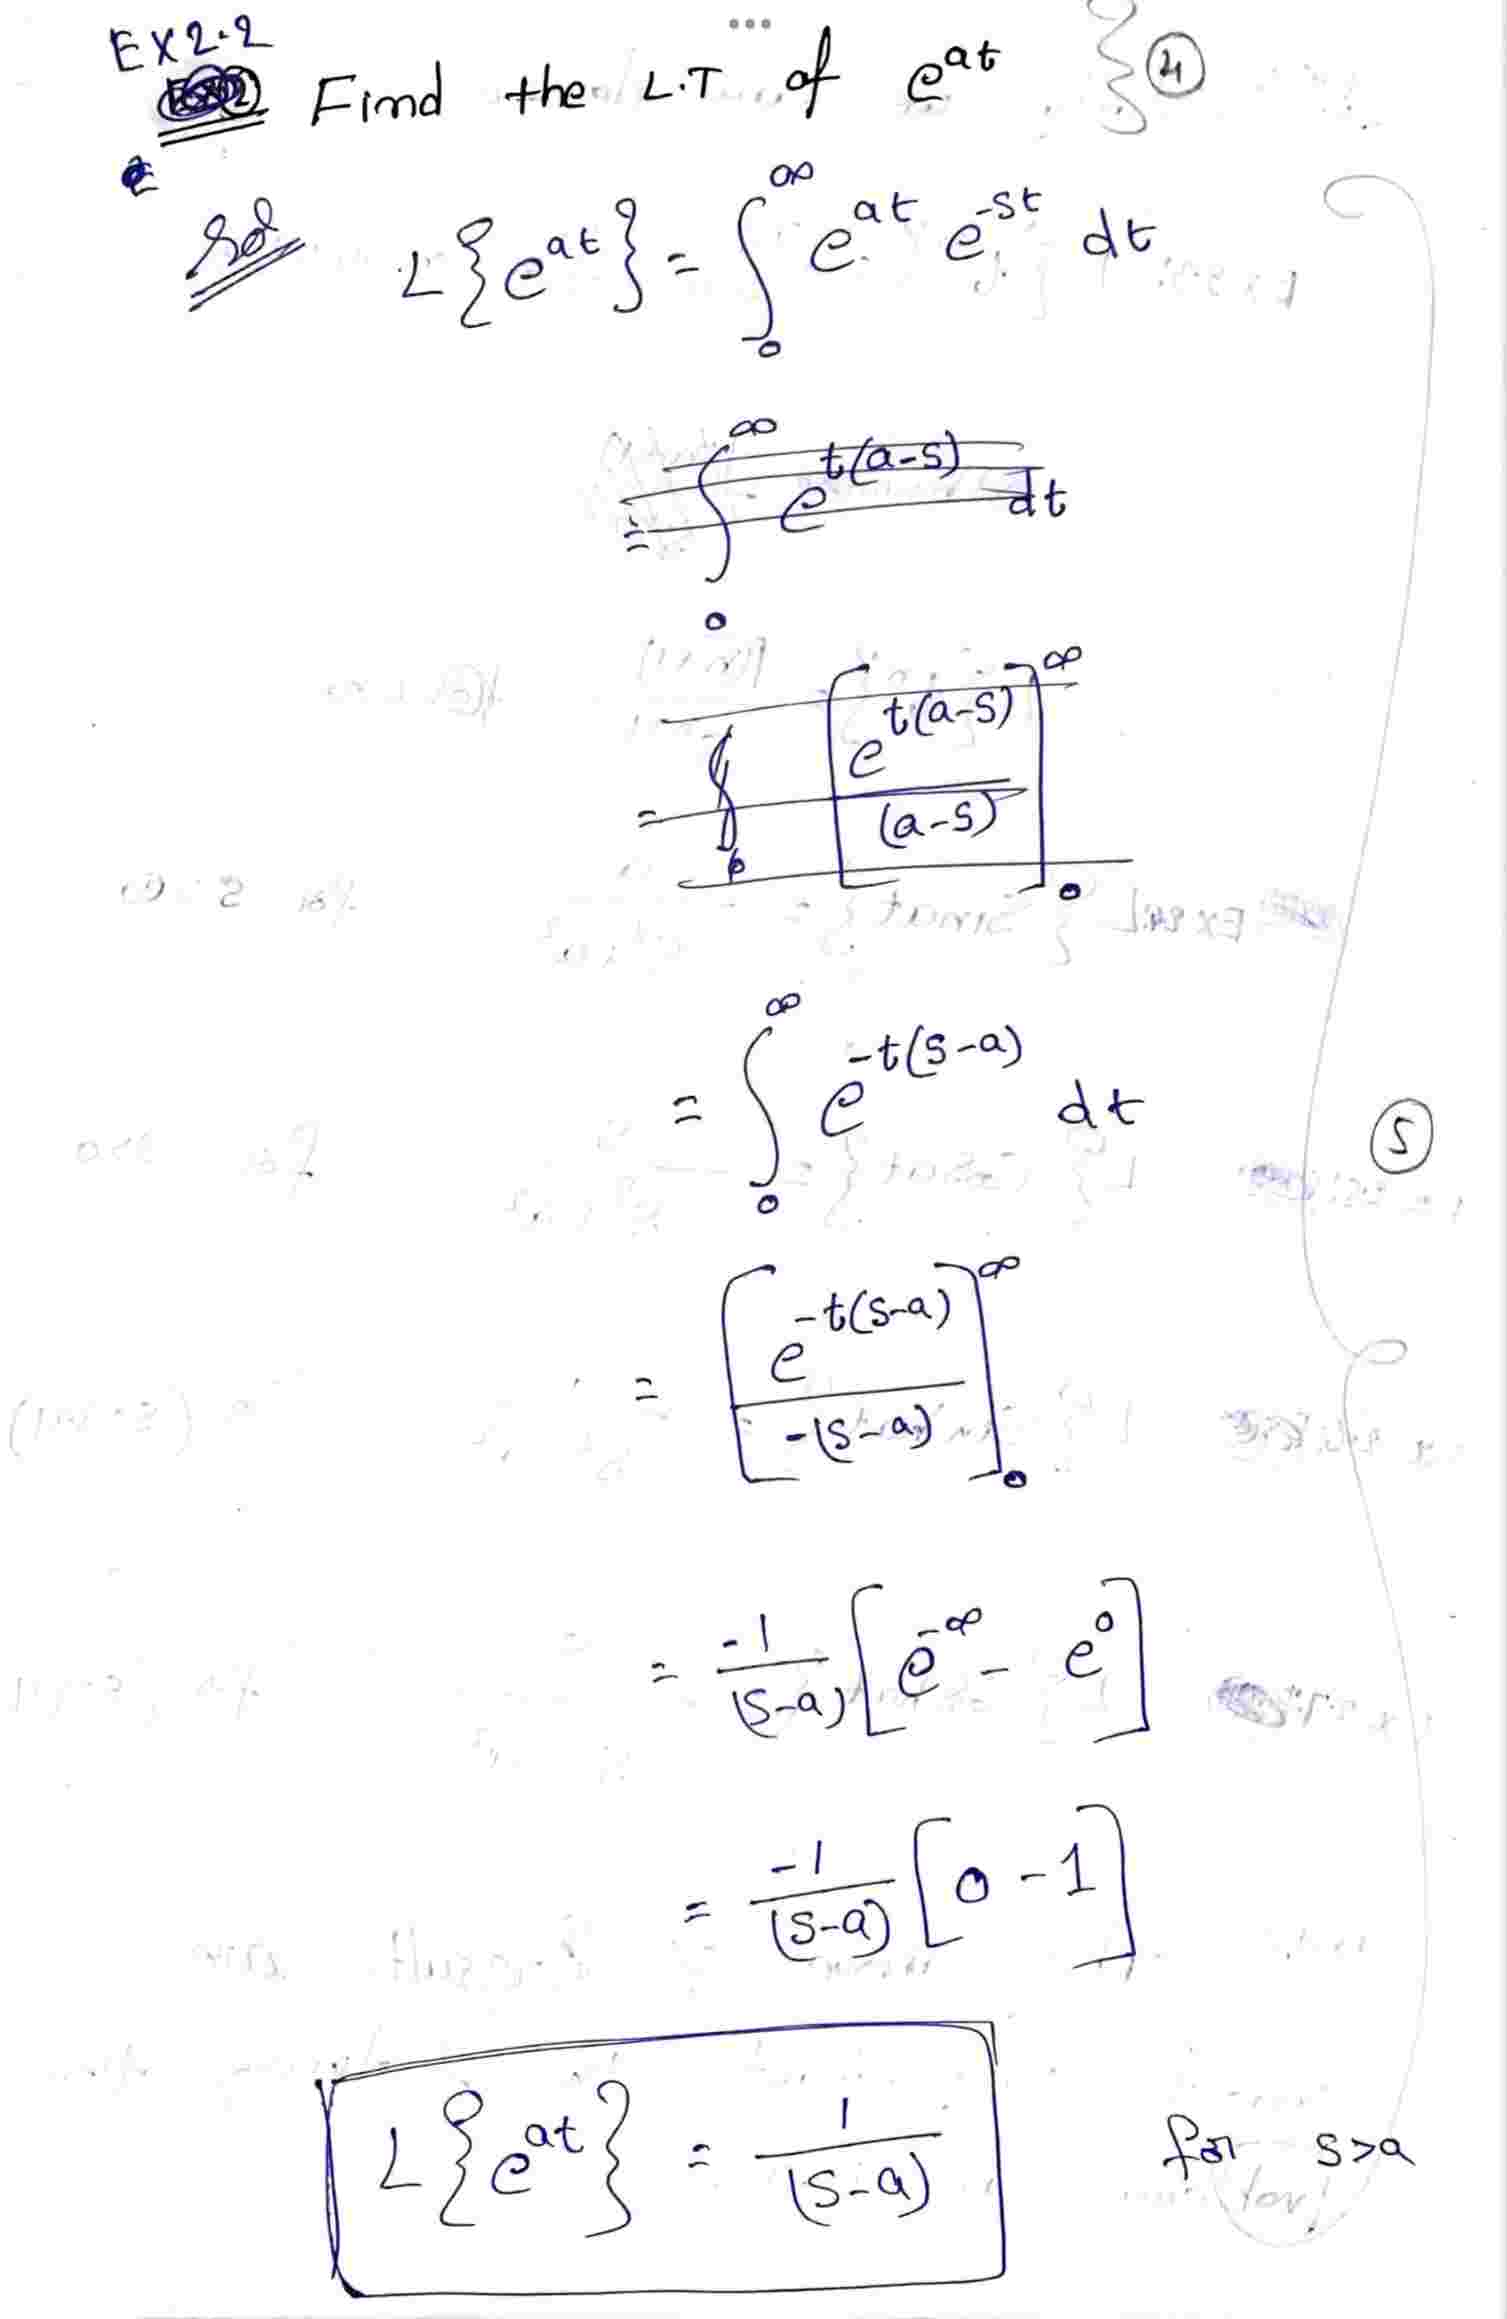 EX2.2
Find the L.T of e^{at} } ④
Sol L{e^{at}} = ∫_0^∞ e^{at} e^{-st} dt
= ∫_0^∞ e^{t(a-s)} dt
= [e^{t(a-s)}/(a-s)]_0^∞
= ∫_0^∞ e^{-t(s-a)} dt
⑤
= [e^{-t(s-a)}/-(s-a)]_0^∞
= -1/(s-a) [e^{-∞} - e^0]
= -1/(s-a) [0 - 1]
L{e^{at}} = 1/(s-a) for s>a